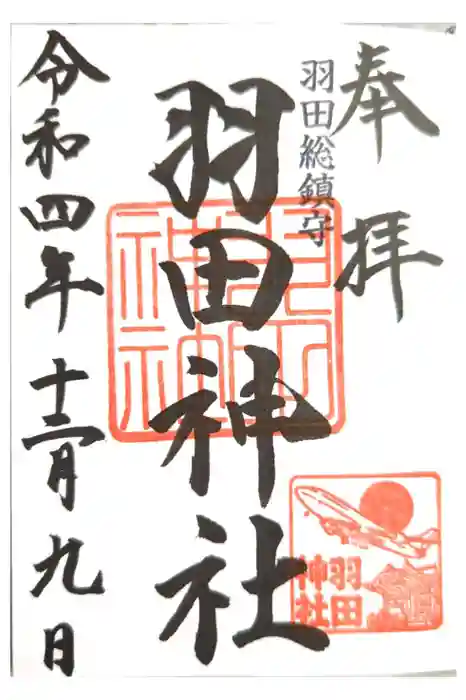 奉拝
羽田総鎮守
羽田神社
羽田
神社
令和四年十二月九日